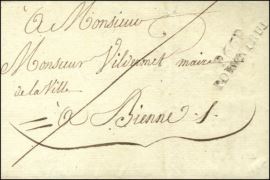 à Monsieur
Monsieur Vildermet maire
de la Ville
à Bienne